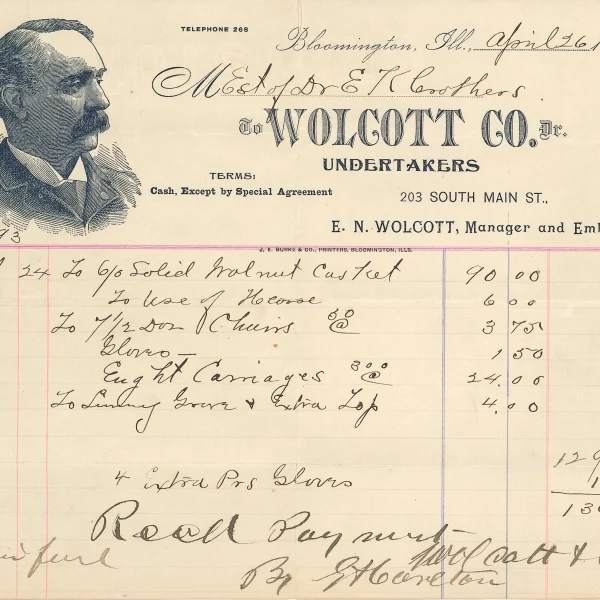 TELEPHONE 268
Bloomington, Ill., April 26 1
M Est of Dr E K Crothers
To WOLCOTT CO. Dr.
UNDERTAKERS
TERMS:
Cash, Except by Special Agreement
203 SOUTH MAIN ST.,
E. N. WOLCOTT, Manager and Emb
93
J. E. BURKE & CO., PRINTERS, BLOOMINGTON, ILLS.
24 To 6/0 Solid Walnut Casket 90 00
To Use of Hearse 6 00
To 7 1/2 Doz Chairs 50 @ 3 75
Gloves — 1 50
Eught Carriages 300 @ 24.00
To Linning Grave & Extra Top 4.00
129
4 Extra Prs Gloves 1
130
Recd Payment
Wolcott &
By